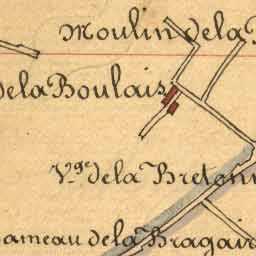 Moulin de la
de la Boulais
Vge de la Breton
ameau de la Bragair